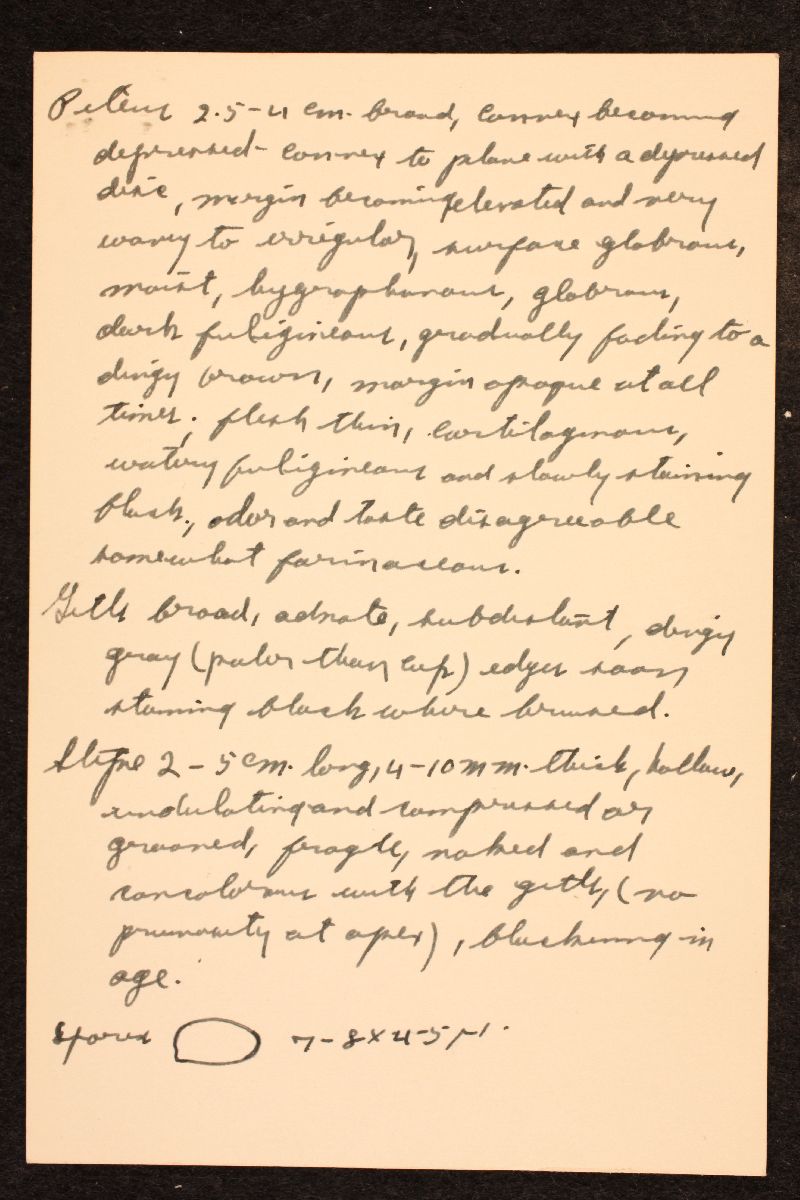 Pileus 2.5-4 cm. broad, convex becoming
depressed-convex to plane with a depressed
disc, margin becoming elevated and very
wavy to irregular, surface glabrous,
moist, hygrophanous, glabrous,
dark fuligineous, gradually fading to a
dingy brown, margin opaque at all
times; flesh thin, cartilaginous,
watery fuligineous and slowly staining
black, odor and taste disagreeable
somewhat farinaceous.
Gills broad, adnate, subdistant, dingy
gray (paler than cup) edges soon
staining black where bruised.
Stipe 2-5 cm. long, 4-10 mm. thick, hollow,
undulating and compressed or
grooved, fragile, naked and
concolorous with the gills, (no
pruinosity at apex), blackening in
age.
Spores 7-8 x 4-5 μ.